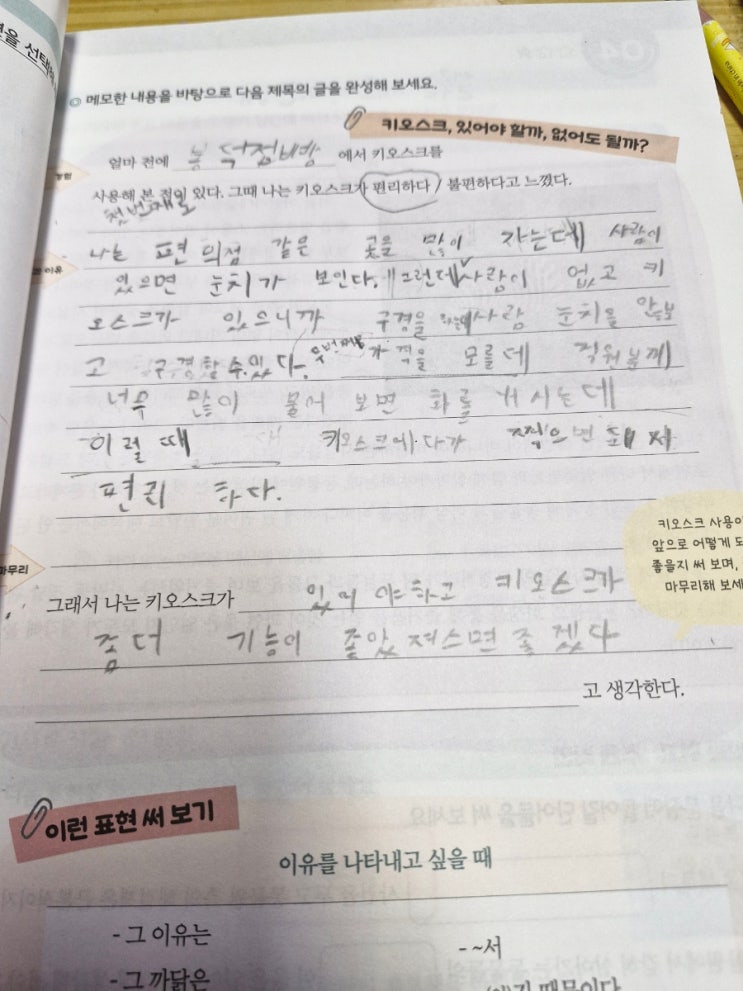 ◎ 메모한 내용을 바탕으로 다음 제목의 글을 완성해 보세요.
키오스크, 있어야 할까, 없어도 될까?
얼마 전에 에서 키오스크를
사용해 본 적이 있다. 그때 나는 키오스크가 편리하다 / 불편하다고 느꼈다.
첫번째로
나는 편의점 같은 곳을 많이 가는데 사람이
이유
있으면 눈치가 보인다. 그런데 사람이 없고 키
오스크가 있으니까 구경을 사람 눈치를 안보
고 구경할 수있다. 두번째로 가격을 모를데 직원분께
너무 많이 물어 보면 화를 내시는데
이럴 때 키오스크에다가 찍으면 돼서
편리 하다.
키오스크 사용이
앞으로 어떻게 되
좋을지 써 보며,
마무리해 보세
마무리
그래서 나는 키오스크가 있어야하고 키오스크가
좀더 기능이 좋았 져스면 좋겠다
고 생각한다.
이런 표현 써 보기
이유를 나타내고 싶을 때
- 그 이유는
- ~서
- 그 까닭은